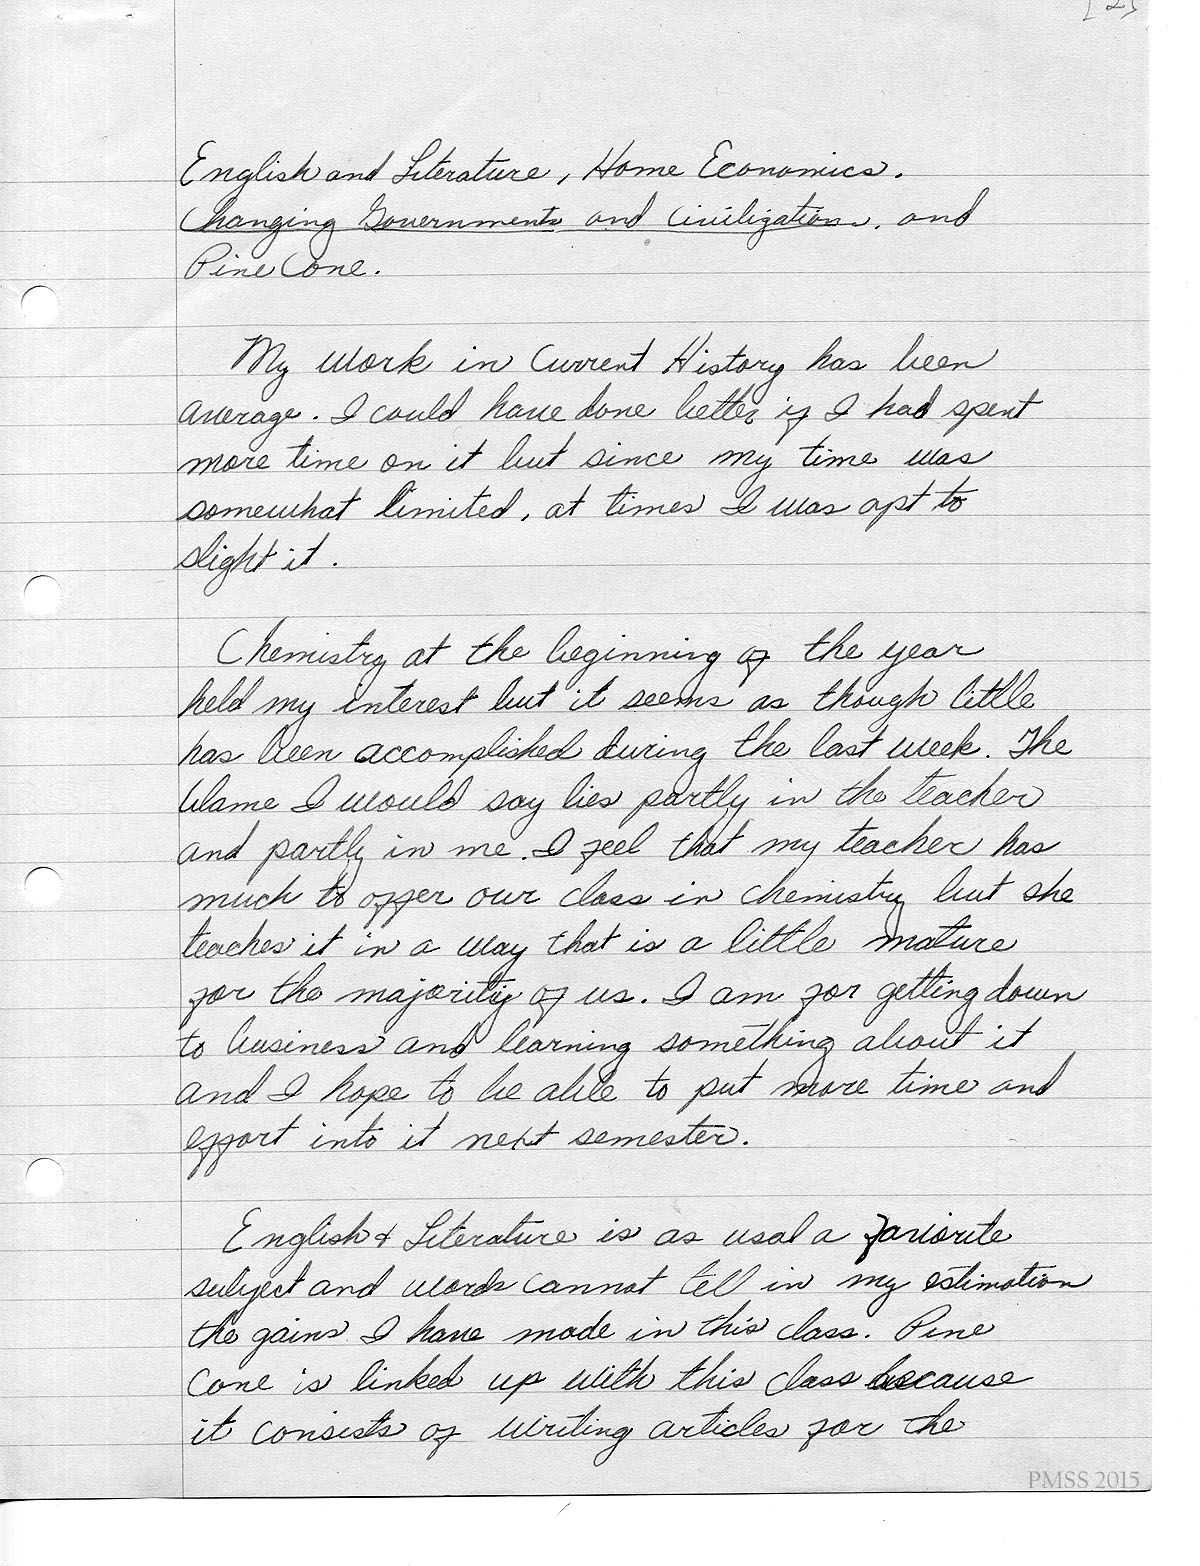 [2]
English and Literature, Home Economics.
Changing Governments and Civilizations. and
Pine Cone.
My work in Current History has been
average. I could have done better if I had spent
more time on it but since my time was
somewhat limited, at times I was apt to
slight it.
Chemistry at the beginning of the year
held my interest but it seems as though little
has been accomplished during the last week. The
blame I would say lies partly in the teacher
and partly in me. I feel that my teacher has
much to offer our class in chemistry but she
teaches it in a way that is a little mature
for the majority of us. I am for getting down
to business and learning something about it
and I hope to be able to put more time and
effort into it next semester.
English & Literature is as usal a faviorite
subject and words cannot tell in my estimation
the gains I have made in this class. Pine
Cone is linked up with this class because
it consists of writing articles for the
PMSS 2015